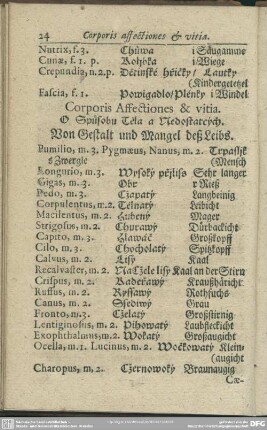 24 Corporis affectiones & vitia.
Nutrix, f. 3. Chůwa i Säugamme
Cunæ, f. 1. p. Kolybka i Wiege
Crepundia, n. 2. p. Dětinské hřičky / Lautky
(Kindergetzel
Fascia, f. 1. Powigadlo / Plénky i Windel
Corporis Affectiones & vitia.
O Spůsobu Těla a Nedostatcých.
Von Gestalt und Mangel deß Leibs.
Pumilio, m. 3. Pygmæus, Nanus, m. 2. Trpasljk
s Zwergle (Mensch
Longurio, m. 3. Wysoký Sehr langer
Gigas, m. 3. Obr r Rieß
Pedo, m. 3. Czapatý Langbeinig
Corpulentus, m. 2. Tělnatý Leibicht
Macilentus, m. 2. Hubený Mager
Strigosus, m. 2. Churawý Dürbackicht
Capito, m. 3. Hlawáč Großkopff
Cilo, m. 3. Chocholatý Spitzkopff
Calvus, m. 2. Lisý Kaal
Recalvaster, m. 2. Na Czele lisý Kaal an der Stirn
Crispus, m. 2. Kadeřawý Kraußhäricht
Ruffus, m. 2. Ryssawý Rothfuchs
Canus, m. 2. Ssediwý Grau
Fronto, m. 3. Czelatý Großstirnig
Lentiginosus, m. 2. Pihowatý Laubfleckicht
Exophthalmus, m. 2. Wokatý Großaugicht
Ocella, m. 1. Lucinus, m. 2. Wočkowatý Klein-
(augicht
Charopus, m. 2. Czernowoký Braunaugig
Cæ-